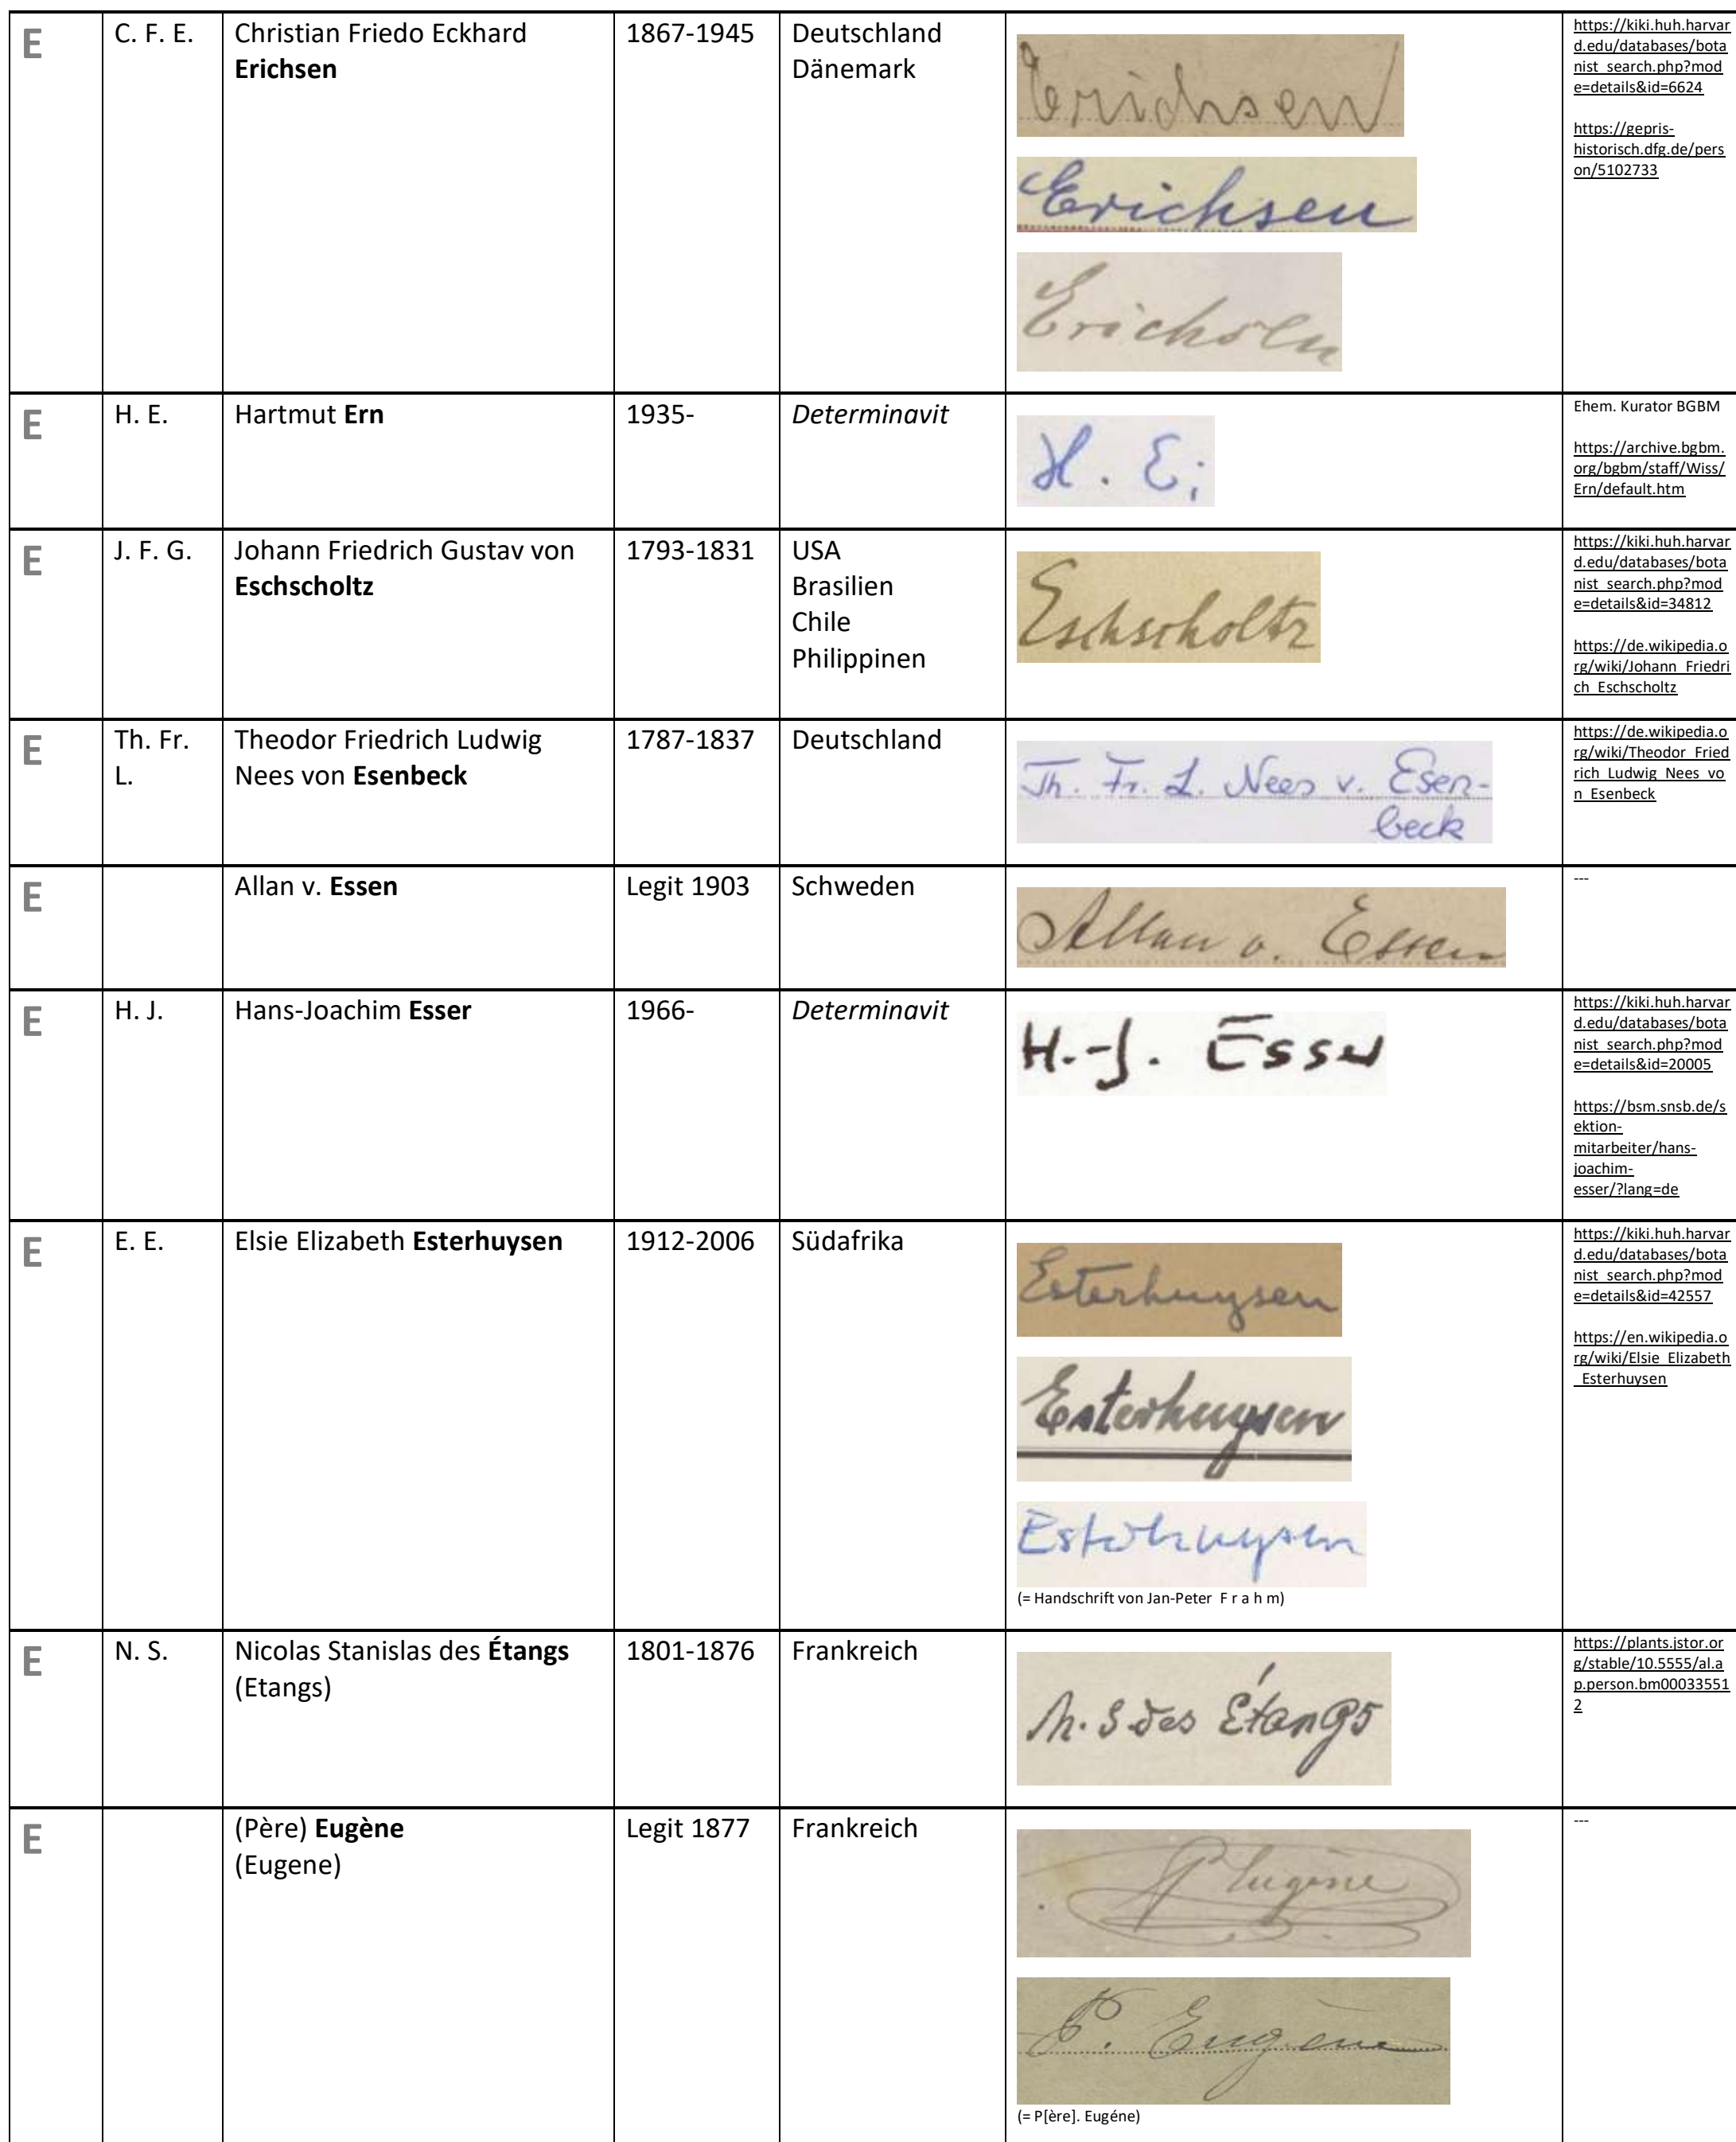 E C. F. E. Christian Friedo Eckhard 1867-1945 Deutschland
Erichsen Dänemark
Erichsen
Erichsen
Erichsen
https://kiki.huh.harvar
d.edu/databases/bota
nist_search.php?mod
e=details&id=6624
https://gepris-
historisch.dfg.de/pers
on/5102733
E H. E. Hartmut Ern 1935- Determinavit
H. E;
Ehem. Kurator BGBM
https://archive.bgbm.
org/bgbm/staff/Wiss/
Ern/default.htm
E J. F. G. Johann Friedrich Gustav von 1793-1831 USA
Eschscholtz Brasilien
Chile
Philippinen
Eschscholtz
https://kiki.huh.harvar
d.edu/databases/bota
nist_search.php?mod
e=details&id=34812
https://de.wikipedia.o
rg/wiki/Johann_Friedri
ch_Eschscholtz
E Th. Fr. Theodor Friedrich Ludwig 1787-1837 Deutschland
L. Nees von Esenbeck
Th. Fr. L. Nees v. Esen-
beck
https://de.wikipedia.o
rg/wiki/Theodor_Fried
rich_Ludwig_Nees_vo
n_Esenbeck
E Allan v. Essen Legit 1903 Schweden
Allan v. Essen
---
E H. J. Hans-Joachim Esser 1966- Determinavit
H.-J. Esser
https://kiki.huh.harvar
d.edu/databases/bota
nist_search.php?mod
e=details&id=20005
https://bsm.snsb.de/s
ektion-
mitarbeiter/hans-
joachim-
esser/?lang=de
E E. E. Elsie Elizabeth Esterhuysen 1912-2006 Südafrika
Esterhuysen
Esterhuysen
Esterhuysen
(= Handschrift von Jan-Peter F r a h m)
https://kiki.huh.harvar
d.edu/databases/bota
nist_search.php?mod
e=details&id=42557
https://en.wikipedia.o
rg/wiki/Elsie_Elizabeth
_Esterhuysen
E N. S. Nicolas Stanislas des Étangs 1801-1876 Frankreich
(Etangs)
N. S des Étangs
https://plants.jstor.or
g/stable/10.5555/al.a
p.person.bm00033551
2
E (Père) Eugène Legit 1877 Frankreich
(Eugene)
P Eugène
P. Eugène
(= P[ère]. Eugéne)
---